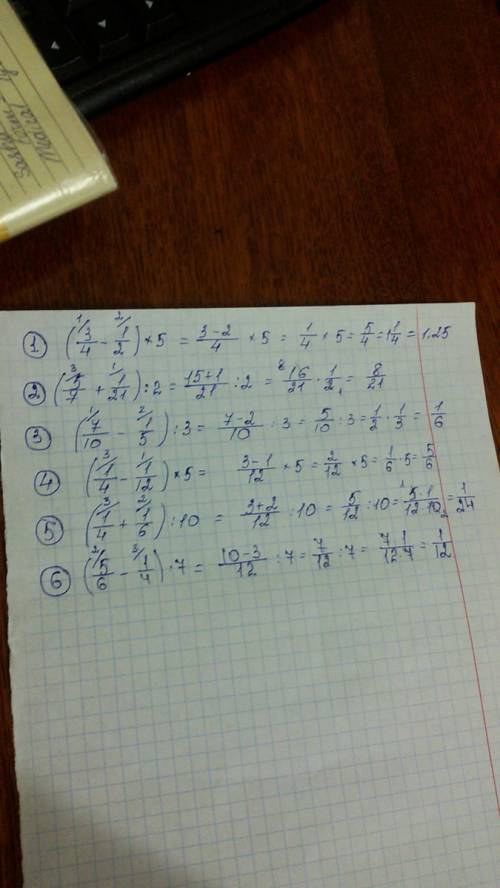 1) (¹/3/4 - ²/1/2) × 5 = 3-2/4 × 5 = 1/4 × 5 = 5/4 = 1 1/4 = 1.25
2) (³/5/7 + ¹/1/21) : 2 = 15+1/21 : 2 = ⁸16/21 · 1/2₁ = 8/21
3) (¹/7/10 - ²/1/5) : 3 = 7-2/10 : 3 = 5/10 : 3 = 1/2 · 1/3 = 1/6
4) (³/1/4 - ¹/1/12) × 5 = 3-1/12 × 5 = 2/12 × 5 = 1/6 · 5 = 5/6
5) (³/1/4 + ²/1/6) : 10 = 3+2/12 : 10 = 5/12 : 10 = ¹5·1/12·10₂ = 1/24
6) (²/5/6 - ³/1/4) : 7 = 10-3/12 : 7 = 7/12 : 7 = 7·1/12·7 = 1/12